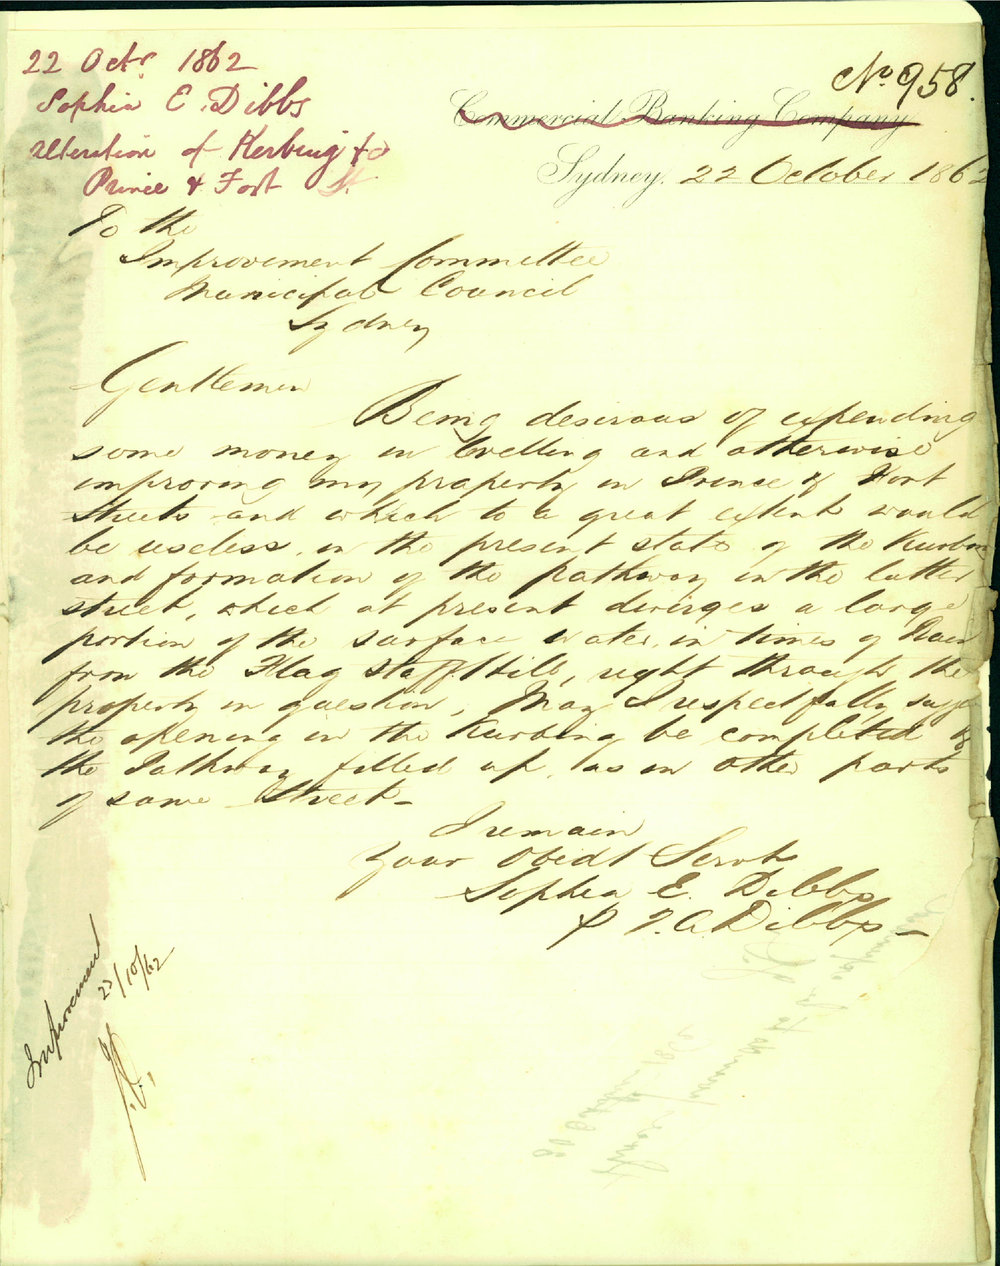 22 Octr. 1862
Sophia E. Dibbs
alteration of Kerbing &c
Prince & Fort St.
No. 958.
Commercial Banking Company
Sydney, 22 October 1862
To the
Improvement Committee
Municipal Council
Sydney
Gentlemen
Being desirous of expending
some money in levelling and otherwise
improving my property in Prince & Fort
Streets and which to a great extent would
be useless, in the present state of the Kurbing
and formation of the pathway in the latter
street, which at present diverges a large
portion of the surface water, in times of Rain
from the Flag Staff Hill, right through the
property in question, May I respectfully suggest
the opening in the Kurbing be completed &
the Pathway filled up, as in other parts
of same Street—
I remain
Your Obedt Servt
Sophia E. Dibbs
P T. A. Dibbs—
Improvement
23/10/62